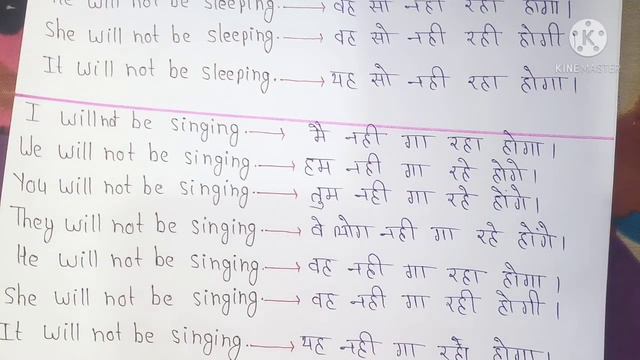 He will not be sleeping. → वह सो नही रहा होगा।
She will not be sleeping. → वह सो नही रही होगी
It will not be sleeping. → यह सो नही रहा होगा।
I willnot be singing. → मै नही गा रहा होगा।
We will not be singing. → हम नही गा रहे होगे।
You will not be singing. → तुम नही गा रहे होंगे।
They will not be singing. → वे लोग नही गा रहे होगे।
He will not be singing. → वह नही गा रहा होगा।
She will not be singing. → वह नही गा रही होगी।
It will not be singing. → यह नही गा रहा होगा।
KINEMASTER